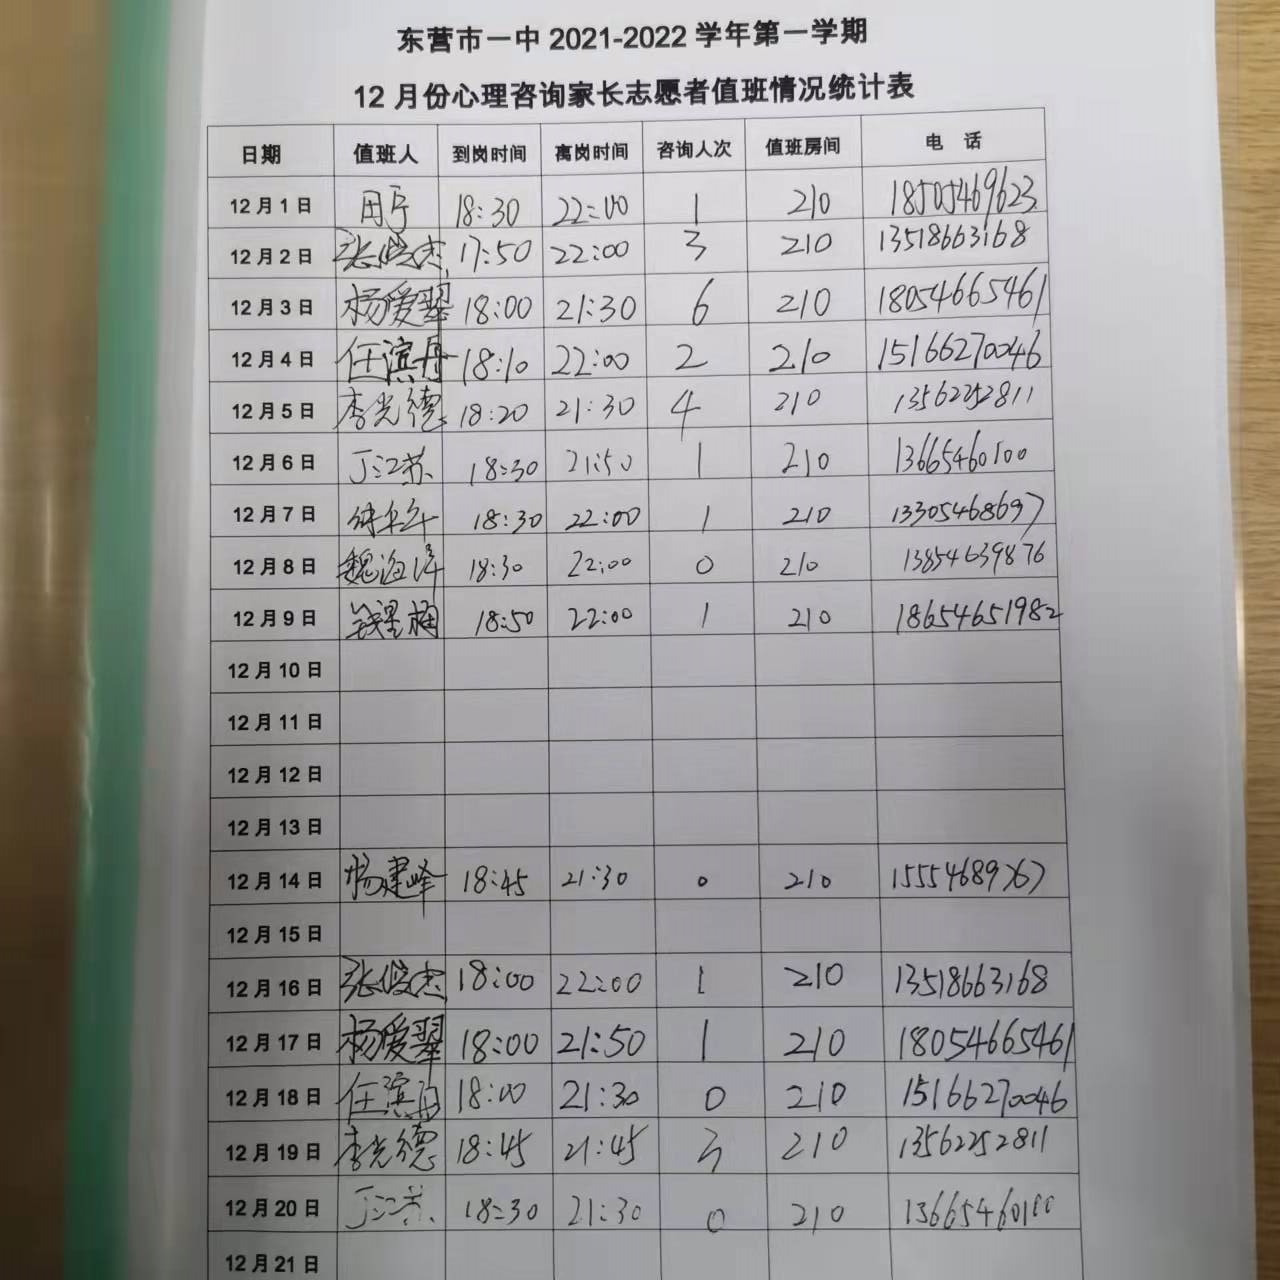 东营市一中 2021-2022 学年第一学期
12 月份心理咨询家长志愿者值班情况统计表
日期 值班人 到岗时间 离岗时间 咨询人次 值班房间 电 话
12 月 1 日 18:30 22:00 1 210 18505469623
12 月 2 日 张俊杰 17:50 22:00 3 210 13518663168
12 月 3 日 杨爱翠 18:00 21:30 6 210 18054665461
12 月 4 日 任滨丹 18:10 22:00 2 210 15166270046
12 月 5 日 李光德 18:20 21:30 4 210 13562252811
12 月 6 日 丁江苏 18:30 21:50 1 210 13665460100
12 月 7 日 18:30 22:00 1 210 13305468697
12 月 8 日 魏海洋 18:30 22:00 0 210 13854639876
12 月 9 日 18:50 22:00 1 210 18654651982
12 月 10 日
12 月 11 日
12 月 12 日
12 月 13 日
12 月 14 日 杨建峰 18:45 21:30 0 210 15554689767
12 月 15 日
12 月 16 日 张俊杰 18:00 22:00 1 210 13518663168
12 月 17 日 杨爱翠 18:00 21:50 1 210 18054665461
12 月 18 日 任滨丹 18:00 21:30 0 210 15166270046
12 月 19 日 李光德 18:45 21:45 3 210 13562252811
12 月 20 日 丁江苏 18:30 21:30 0 210 13665460100
12 月 21 日